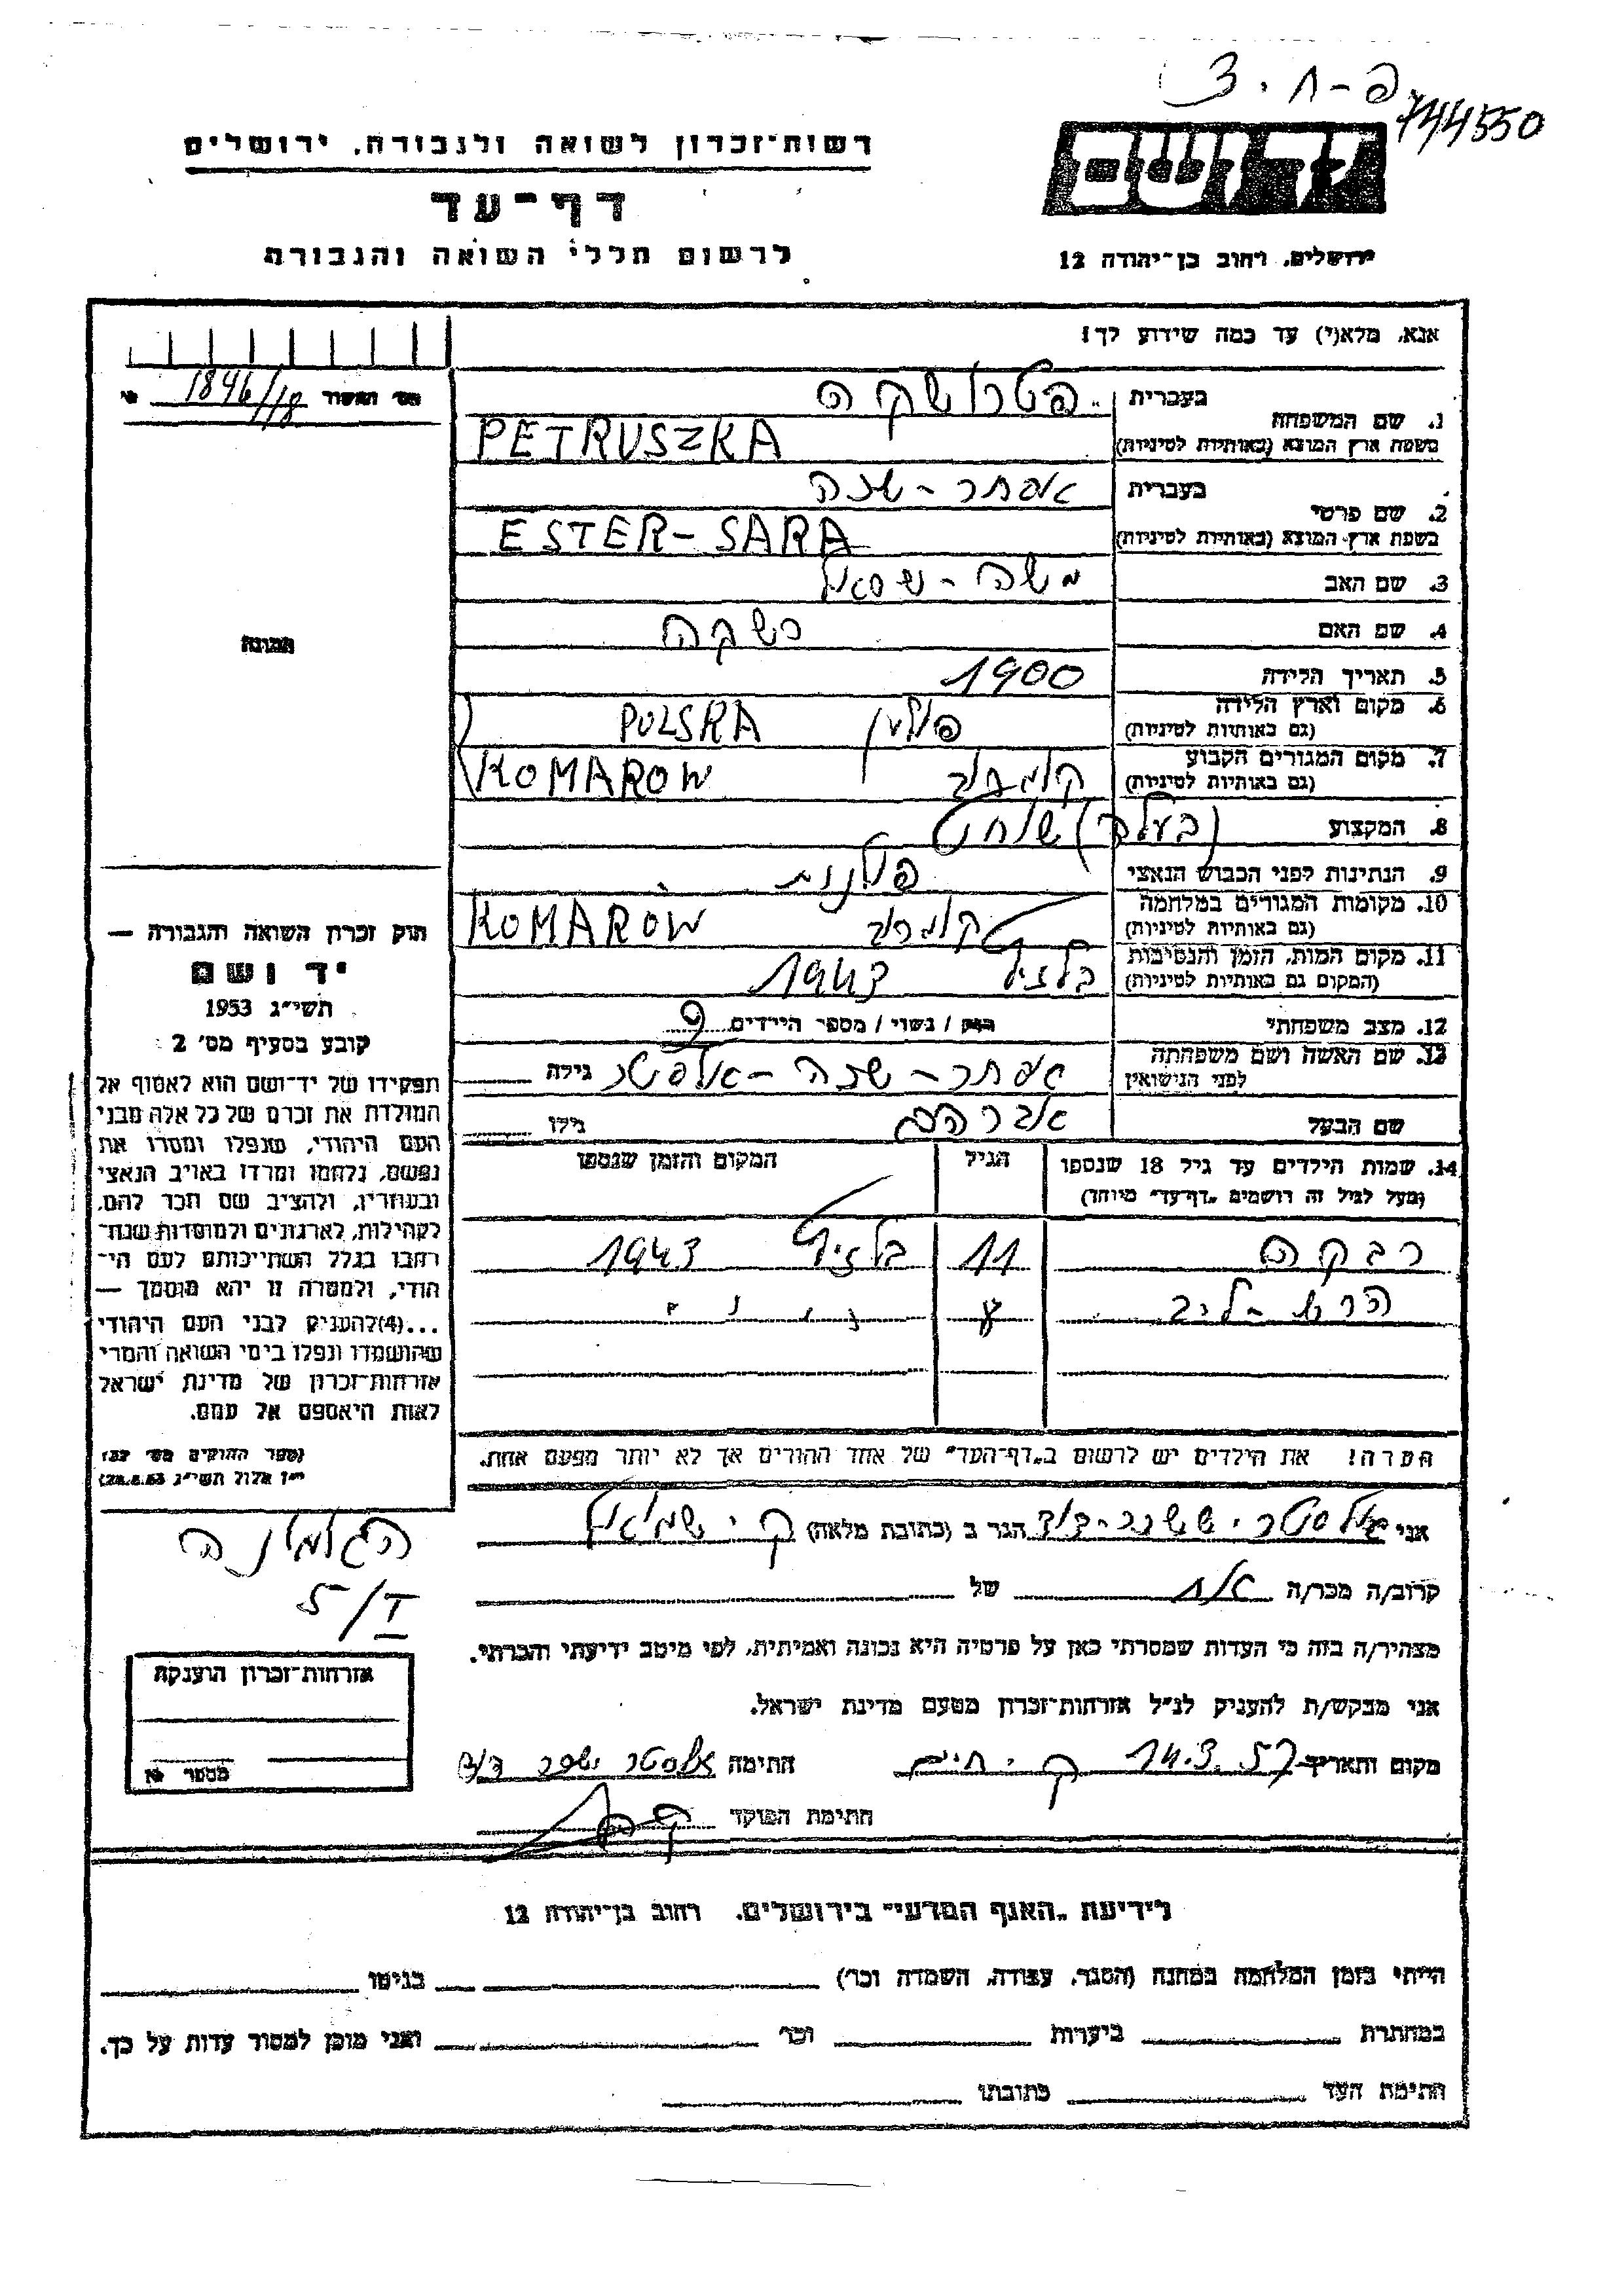 פ-ח. 3
744550
רשות־זכרון לשואה ולגבורה, ירושלים
דף־עד
לרשום חללי השואה והגבורה
ידושם
ירושלים, רחוב בן־יהודה 12
אנא, מלא(י) עד כמה שידוע לך!
1846/18
1. שם המשפחה
בעברית
פטרושקה
בשפת ארץ המוצא (באותיות לטיניות)
PETRUSZKA
2. שם פרטי
בעברית
אסתר-שרה
בשפת ארץ המוצא (באותיות לטיניות)
ESTER-SARA
3. שם האב
משה-
4. שם האם
5. תאריך הלידה
1900
6. מקום וארץ הלידה
(גם באותיות לטיניות)
פולין POLSKA
7. מקום המגורים הקבוע
(גם באותיות לטיניות)
קומרוב KOMAROW
8. המקצוע
(בעלה) שוחט
9. הנתינות לפני הכבוש הנאצי
פולנית
10. מקומות המגורים במלחמה
(גם באותיות לטיניות)
קומרוב KOMAROW
11. מקום המות, הזמן והנסיבות
(המקום גם באותיות לטיניות)
בלזיץ 1943
12. מצב משפחתי
רווק / נשוי / מספר הילדים
13. שם האשה ושם משפחתה
לפני הנישואין
אסתר-שרה-אלסטר
גילה
שם הבעל
אברהם
גילו
14. שמות הילדים עד גיל 18 שנספו
(מעל לגיל זה רושמים „דף־עד" מיוחד)
הגיל
המקום והזמן שנספו
רבקה 11 בלזיץ 1943
הרש-ליב
הערה! את הילדים יש לרשום ב„דף־העד" של אחד ההורים אך לא יותר מפעם אחת.
תמונה
חוק זכרון השואה והגבורה —
יד ושם
תשי״ג 1953
קובע בסעיף מס׳ 2:
תפקידו של יד־ושם הוא לאסוף אל
המולדת את זכרם של כל אלה מבני
העם היהודי, שנפלו ומסרו את
נפשם, נלחמו ומרדו באויב הנאצי
ובעוזריו, ולהציב שם וזכר להם,
לקהילות, לארגונים ולמוסדות שנח־
רבו בגלל השתייכותם לעם הי־
הודי, ולמטרה זו יהא מוסמך —
...(4)להעניק לבני העם היהודי
שהושמדו ונפלו בימי השואה והמרי
אזרחות־זכרון של מדינת ישראל
לאות היאספם אל עמם.
(ספר החוקים מס׳ 132
י״ז אלול תשי״ג 28.8.53)
5/I
אני אלסטר דוד הגר ב (כתובת מלאה) ק. שמואל
קרוב/ה מכר/ה אח של
מצהיר/ה בזה כי העדות שמסרתי כאן על פרטיה היא נכונה ואמיתית, לפי מיטב ידיעתי והכרתי.
אני מבקש/ת להעניק לנ״ל אזרחות־זכרון מטעם מדינת ישראל.
מקום ותאריך 14.3.57 ק. חיים חתימה אלסטר דוד
חתימת הפוקד
אזרחות־זכרון הוענקה
מספר
לידיעת „האגף המדעי" בירושלים, רחוב בן־יהודה 12
הייתי בזמן המלחמה במחנה (הסגר, עבודה, השמדה וכו׳) בגיטו
במחתרת ביערות וכו׳ ואני מוכן למסור עדות על כך.
חתימת העד כתובתו